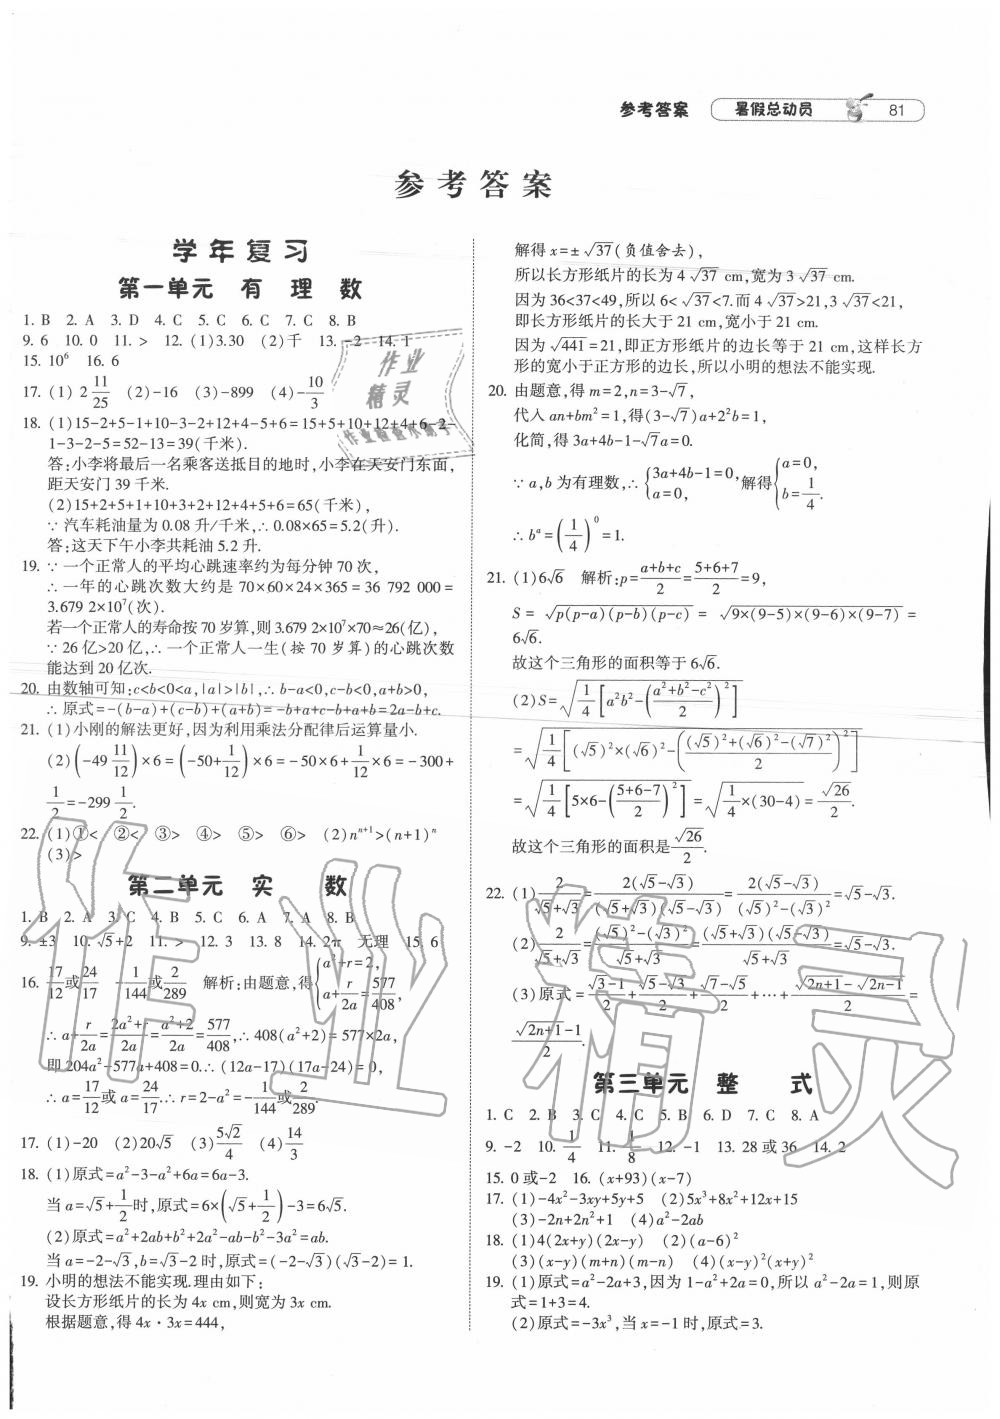 参考答案 暑假总动员 81
参考答案
学年复习
第一单元 有理数
1. B 2. A 3. D 4. C 5. C 6. C 7. C 8. B
9. 6 10. 0 11. > 12. (1)3.30 (2)千 13. -2 14. 1
15. 10⁶ 16. 6
17. (1) 2 11/25 (2)-16 (3)-899 (4)-10/3
18. (1)15-2+5-1+10-3-2+12+4-5+6=15+5+10+12+4+6-2-
1-3-2-5=52-13=39(千米).
答:小李将最后一名乘客送抵目的地时,小李在天安门东面,
距天安门 39 千米.
(2)15+2+5+1+10+3+2+12+4+5+6=65(千米),
∵ 汽车耗油量为 0.08 升/千米,∴ 0.08×65=5.2(升).
答:这天下午小李共耗油 5.2 升.
19. ∵ 一个正常人的平均心跳速率约为每分钟 70 次,
∴ 一年的心跳次数大约是 70×60×24×365=36 792 000=
3.679 2×10⁷(次).
若一个正常人的寿命按 70 岁算,则 3.679 2×10⁷×70≈26(亿),
∵ 26 亿>20 亿,∴ 一个正常人一生(按 70 岁算)的心跳次数
能达到 20 亿次.
20. 由数轴可知:c<b<0<a,|a|>|b|,∴ b-a<0,c-b<0,a+b>0,
∴ 原式=-(b-a)+(c-b)+(a+b)=-b+a+c-b+a+b=2a-b+c.
21. (1)小刚的解法更好,因为利用乘法分配律后运算量小.
(2)(-49 11/12)×6=(-50+1/12)×6=-50×6+1/12×6=-300+
1/2=-299 1/2.
22. (1)①< ②< ③> ④> ⑤> ⑥> (2)nⁿ⁺¹>(n+1)ⁿ
(3)>
第二单元 实数
1. B 2. A 3. C 4. B 5. C 6. A 7. A 8. B
9. ±3 10. √5+2 11. > 12. 3 13. 8 14. 2π 无理 15. 6
16. 17/12或24/17 -1/144或2/289 解析:由题意,得{a²+r=2, a+r/2a=577/408,
∴ a+r/2a=(2a²+r)/2a=(a²+2)/2a=577/408,∴ 408(a²+2)=577×2a,
即 204a²-577a+408=0.∴ (12a-17)(17a-24)=0,
∴ a=17/12或 a=24/17.∴ r=2-a²=-1/144或2/289.
17. (1)-20 (2)20√5 (3)5√2/4 (4)14/3
18. (1)原式=a²-3-a²+6a=6a-3.
当 a=√5+1/2时,原式=6×(√5+1/2)-3=6√5.
(2)原式=a²+2ab+b²+2a²-ab-b²-3a²=ab.
当 a=-2-√3,b=√3-2 时,原式=(-2-√3)(√3-2)=1.
19. 小明的想法不能实现.理由如下:
设长方形纸片的长为 4x cm,则宽为 3x cm.
根据题意,得 4x·3x=444,
解得 x=±√37(负值舍去),
所以长方形纸片的长为 4√37 cm,宽为 3√37 cm.
因为 36<37<49,所以 6<√37<7.而 4√37>21,3√37<21,
即长方形纸片的长大于 21 cm,宽小于 21 cm.
因为√441=21,即正方形纸片的边长等于 21 cm,这样长方
形的宽小于正方形的边长,所以小明的想法不能实现.
20. 由题意,得 m=2,n=3-√7,
代入 an+bm²=1,得(3-√7)a+2²b=1,
化简,得 3a+4b-1-√7a=0.
∵ a,b 为有理数,∴ {3a+4b-1=0, a=0, 解得{a=0, b=1/4.
∴ bᵃ=(1/4)⁰=1.
21. (1)6√6 解析:p=(a+b+c)/2=(5+6+7)/2=9,
S=√(p(p-a)(p-b)(p-c))=√(9×(9-5)×(9-6)×(9-7))=
6√6.
故这个三角形的面积等于 6√6.
(2)S=√(1/4[a²b²-((a²+b²-c²)/2)²])
=√(1/4[(√5)²×(√6)²-(((√5)²+(√6)²-(√7)²)/2)²])
=√(1/4[5×6-((5+6-7)/2)²])=√(1/4×(30-4))=√26/2.
故这个三角形的面积是√26/2.
22. (1)2/(√5+√3)=2(√5-√3)/((√5+√3)(√5-√3))=2(√5-√3)/((√5)²-(√3)²)=√5-√3.
(2)2/(√5+√3)=((√5)²-(√3)²)/(√5+√3)=(√5+√3)(√5-√3)/(√5+√3)=√5-√3.
(3)原式=(√3-1)/2+(√5-√3)/2+(√7-√5)/2+…+(√(2n+1)-√(2n-1))/2=
(√(2n+1)-1)/2.
第三单元 整式
1. C 2. B 3. C 4. C 5. B 6. D 7. C 8. A
9. -2 10. 1/4 11. 1/8 12. -1 13. 28 或 36 14. 2
15. 0 或-2 16. (x+93)(x-7)
17. (1)-4x²-3xy+5y+5 (2)5x³+8x²+12x+15
(3)-2n+2n²+1 (4)a²-2ab
18. (1)4(2x+y)(2x-y) (2)(a-6)²
(3)(x-y)(m+n)(m-n) (4)(x-y)²(x+y)²
19. (1)原式=a²-2a+3,因为 1-a²+2a=0,所以 a²-2a=1,则原
式=1+3=4.
(2)原式=-3x³,当 x=-1 时,原式=3.
作业
精灵
作业检查小助手
作业精灵